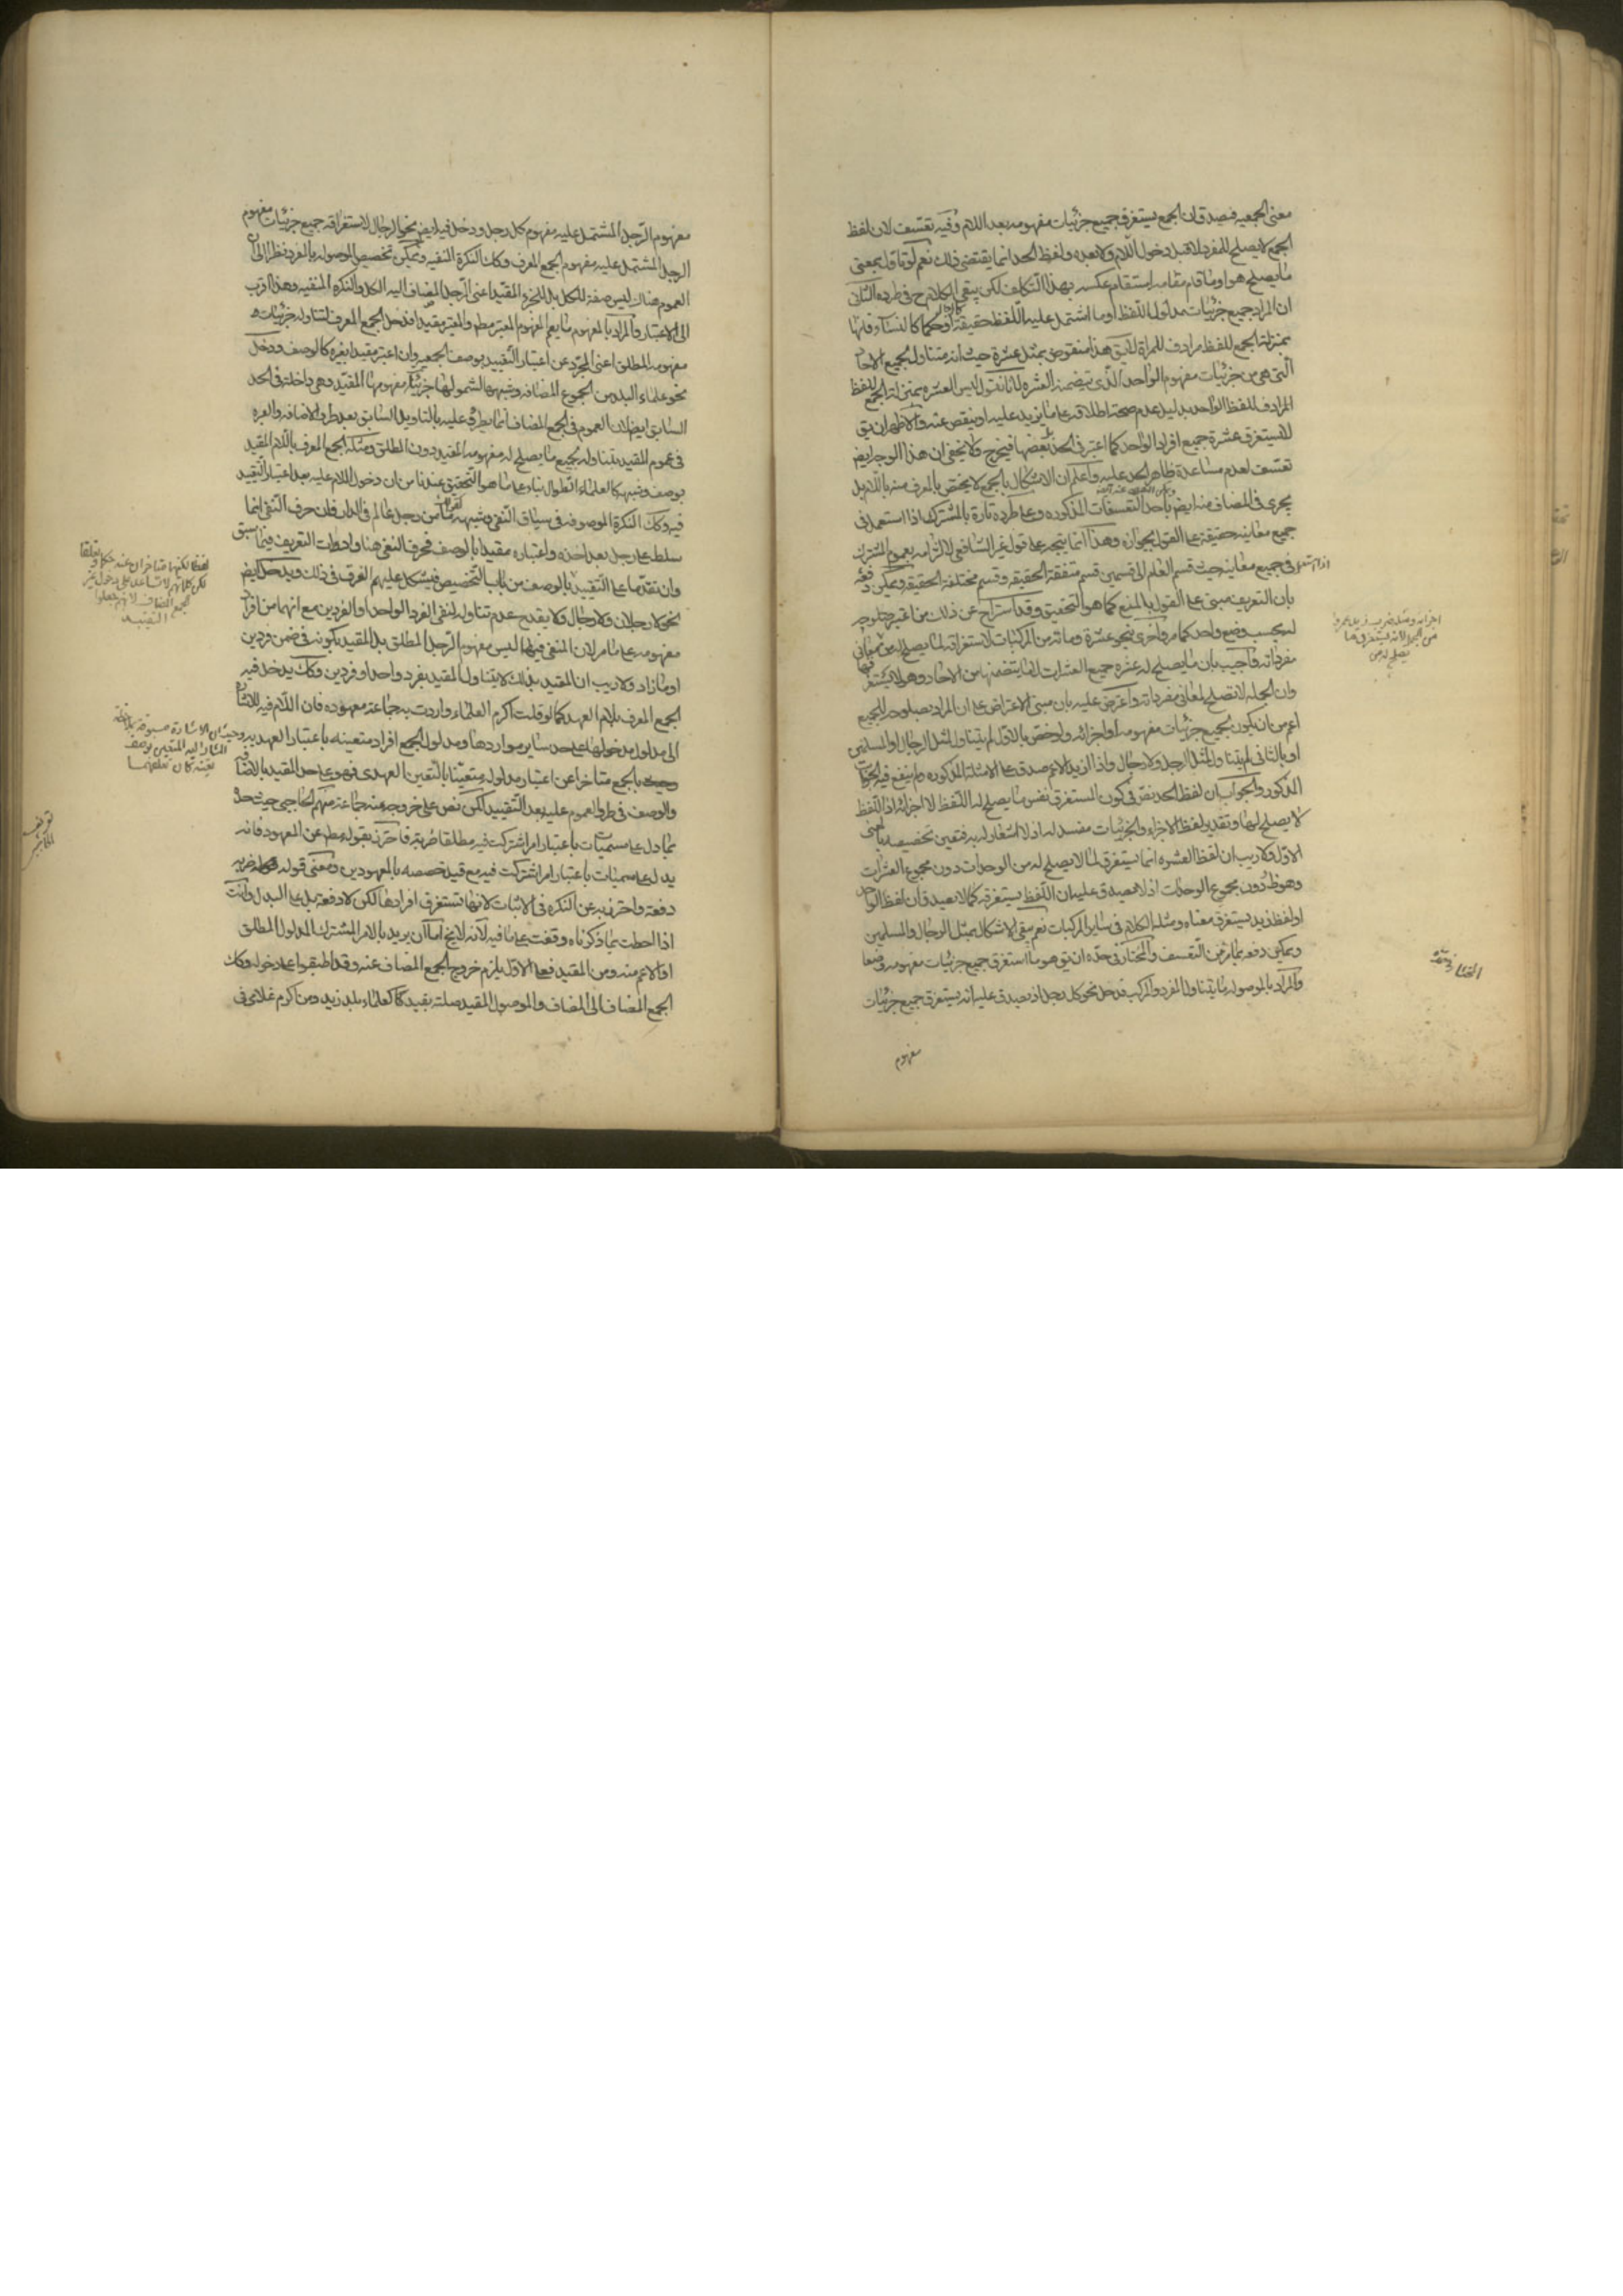 معنى الجمعيه فيصدق ان الجمع يستغرق جميع جزئيات مفهومه بعد اللام وفيه تعسف لان لفظ
الجمع لا يصلح للمفرد لا قبل دخول اللام ولا بعده ولفظ الحد انما يقتضى ذلك نعم لو تاول بمعنى
ما يصلح هو او ما قام مقامه استقام عكسه بهذا التكلف لكن يبقى الكلام ح فى طرده الثانى
ان المراد جميع جزئيات مدلول اللفظ او ما اشتمل عليه اللفظ حقيقة او حكما كالنساء فانها
بمنزلة الجمع للفظ مرادف للمراة لا يق هذا منقوض بمثل عشرة حيث انه متناول لجميع الاحاد
التى هى من جزئيات مفهوم الواحد الذى تضمنه العشره لانا نقول ليس العشره بمنزلة الجمع للفظ
المرادف للفظ الواحد بدليل عدم صحة اطلاقه على ما يزيد عليه او ينقص عنه والاظهر ان يق
لا يستغرق عشرة جميع افراد الواحد كما اعتبر فى الحد بل بعضها فيخرج ولا يخفى ان هذا الوجه ايض
تعسف لعدم مساعدة ظاهر الحد عليه واعلم ان الاشكال بالجمع لا يختص بالمعرف منه باللام بل
يجرى فى المضاف منه ايض باحد التعسفات المذكوره وعلى طرده تارة بالمشترك اذا استعمل فى
جميع معانيه حقيقة على القول بجوازه وهذا انما يتجه على قول غير الشافعى لالتزامه بعموم المشترك
اذا استعمل فى جميع معانيه حيث قسم العام الى قسمين قسم متفقة الحقيقه وقسم مختلفة الحقيقه ويمكن دفعه
بان التعريف مبنى على القول بالمنع كما هو التحقيق وقد استراح عن ذلك من اعتبر صلوحه
له بحسب وضع واحد كما مر واخرى بنحو عشرة ومائه من المركبات لاستغراقه لما يصلح له من
مفرداته واجيب بان ما يصلح له عشره جميع العشرات لا ما يتضمنها من الاحاد وهو لا يستغرقها
وان الجمله لا تصلح لمعانى مفرداته واعترض عليه بان مبنى الاعتراض على ان المراد بصلوحه للجميع
اعم من ان يكون لجميع جزئيات مفهومه او اجزائه ولو خص بالاول لم يتناول لمثل الرجال والمسلمين
او بالثانى لم يتناول لمثل الرجل ولا رجال واذا اريد الاعم صدق على الامثلة المذكوره ولم ينفع فيه الجواب
المذكور والجواب ان لفظ الحد نص فى كون المستغرق نفس ما يصلح له اللفظ لا اجزائه اذ اللفظ
لا يصلح لها وتقدير لفظ الاجزاء والجزئيات مفسد له اذ لا اشعار له به فتعين تخصيصه بالمعنى
الاول ولا ريب ان لفظ العشره انما يستغرق لما لا يصلح له من الوحدات دون مجموع العشرات
وهو ظ دون مجموع الوحدات اذ لا يصدق عليه ان اللفظ يستغرقه كما لا يصدق ان لفظ الواحد
او لفظ زيد يستغرق معناه ومثله الكلام فى ساير المركبات نعم يبقى الاشكال بمثل الرجال والمسلمين
ويمكن دفعه بما مر من التعسف والمختار فى حده ان يق هو ما استغرق جميع جزئيات مفهومه وضعا
والمراد بالموصوله ما يتناول المفرد والمركب فدخل نحو كل رجل اذ يصدق عليه انه يستغرق جميع جزئيات
مفهوم
اجزائه ومثله ضرب زيد عمروا
من الجمل لانه يستغرق ما
يصلح له من
مفهوم الرجل المشتمل عليه مفهوم كل رجل ودخل فيه ايض نحو الرجال لاستغراقه جميع جزئيات مفهوم
الرجل المشتمل عليه مفهوم الجمع المعرف وكك النكرة المنفيه ويمكن تخصيص الموصوله بالمفرد نظرا الى ان
العموم هناك ليس صفة للكل بل للجزء المقيد اعنى الرجل المضاف اليه الكل والنكره المنفيه وهذا اقرب
الى الاعتبار والمراد بالمفهوم ما يعم المفهوم المعتبر مط والمعتبر مقيدا فدخل الجمع المعرف لتناوله جزئيات
مفهومه المطلق اعنى المجرد عن اعتبار التقييد بوصف الجمعيه وان اعتبر مقيدا بغيره كالوصف ودخل
نحو علماء البلد من الجموع المضافه وشبهها لشمولها جزئيات مفهومها المقيد وهى داخلة فى الحد
السابق ايض لان العموم فى الجمع المضاف انما يطرئ عليه بالتاويل السابق بعد طرو الاضافه والعبره
فى عموم المقيد بتناوله لجميع ما يصلح له مفهومه المقيد دون المطلق ومثله الجمع المعرف باللام المقيد
بوصف وشبهه كالعلماء الطوال بناء على ما هو التحقيق عندنا من ان دخول اللام عليه بعد اعتبار التقييد
فيه وكك النكرة الموصوفه فى سياق النفى وشبهه كقولك ما من رجل عالم فى الدار فان حرف النفى انما
سلط على رجل بعد اخذه واعتباره مقيدا بالوصف فحرف النفى هنا وادوات التعريف فيما سبق
وان تقدما على التقييد بالوصف من باب التخصيص فيشكل عليهم الفرق فى ذلك ويدخل ايض
نحو لا رجلان ولا رجال ولا يقدح عدم تناوله لنفى الفرد الواحد او الفردين مع انهما من افراد
مفهومه على ما مر لان المنفى فيها ليس مفهوم الرجل المطلق بل المقيد بكونه فى ضمن فردين
او ما زاد ولا ريب ان المقيد بذلك لا يتناول المقيد بفرد واحد او فردين وكك يدخل فيه
الجمع المعرف بلام العهد كما لو قلت اكرم العلماء واردت به جماعة معهوده فان اللام فيه للاشارة
الى مدلول مدخولها على حد ساير مواردها ومدلول الجمع افراد متعينه باعتبار العهديه وحيث ان الاشارة
بالجمع متاخرا عن اعتبار مدلوله متعينا بالتعين العهدى فهو على حد المقيد بالاضافه
والوصف فى طرو العموم عليه بعد التقييد لكن نص على خروجه عنه جماعة منهم الحاجبى حيث حده
بما دل على مسميات باعتبار امر اشتركت فيه مطلقا ضربة فاحترز بقوله مط عن المعهود فانه
يدل على مسميات باعتبار امر اشتركت فيه مع قيد خصصه بالمعهودين ومعنى قوله ضربه
دفعة واحترز به عن النكره فى الاثبات لانها تستغرق افرادها لكن لا دفعة بل على البدل وانت
اذا احطت بما ذكرناه وقفت على ما فيه لانه لا يخ اما ان يريد بالامر المشترك المدلول المطلق
او الاعم منه ومن المقيد فعلى الاول يلزم خروج الجمع المضاف عنه وقد اطبقوا على دخوله وكك
الجمع المضاف الى المضاف والموصول المقيد صلته بقيد كاكعلماء بلد زيد ومن اكرم غلامى فى
لفظا لكنهما متاخران عنه حكما وتعلقا
لكن كلماتهم لا تساعد على دخول غير
الجمع المضاف لانهم جعلوا
التقييد